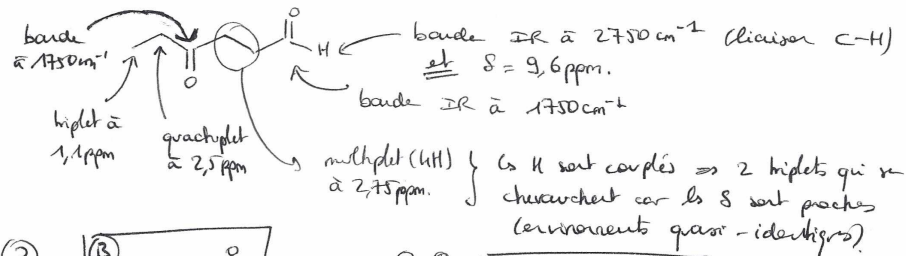 O
bande
à 1750cm⁻¹
H
bande IR à 2750 cm⁻¹ (liaison C-H)
et δ = 9,6ppm.
O
bande IR à 1750cm⁻¹
triplet à
1,1ppm
quadruplet
à 2,5ppm
multiplet (4H)
à 2,75ppm.
Cs H sont couplés => 2 triplets qui se
chevauchent car ls δ sont proches
(environnements quasi-identiques).
2
B
O